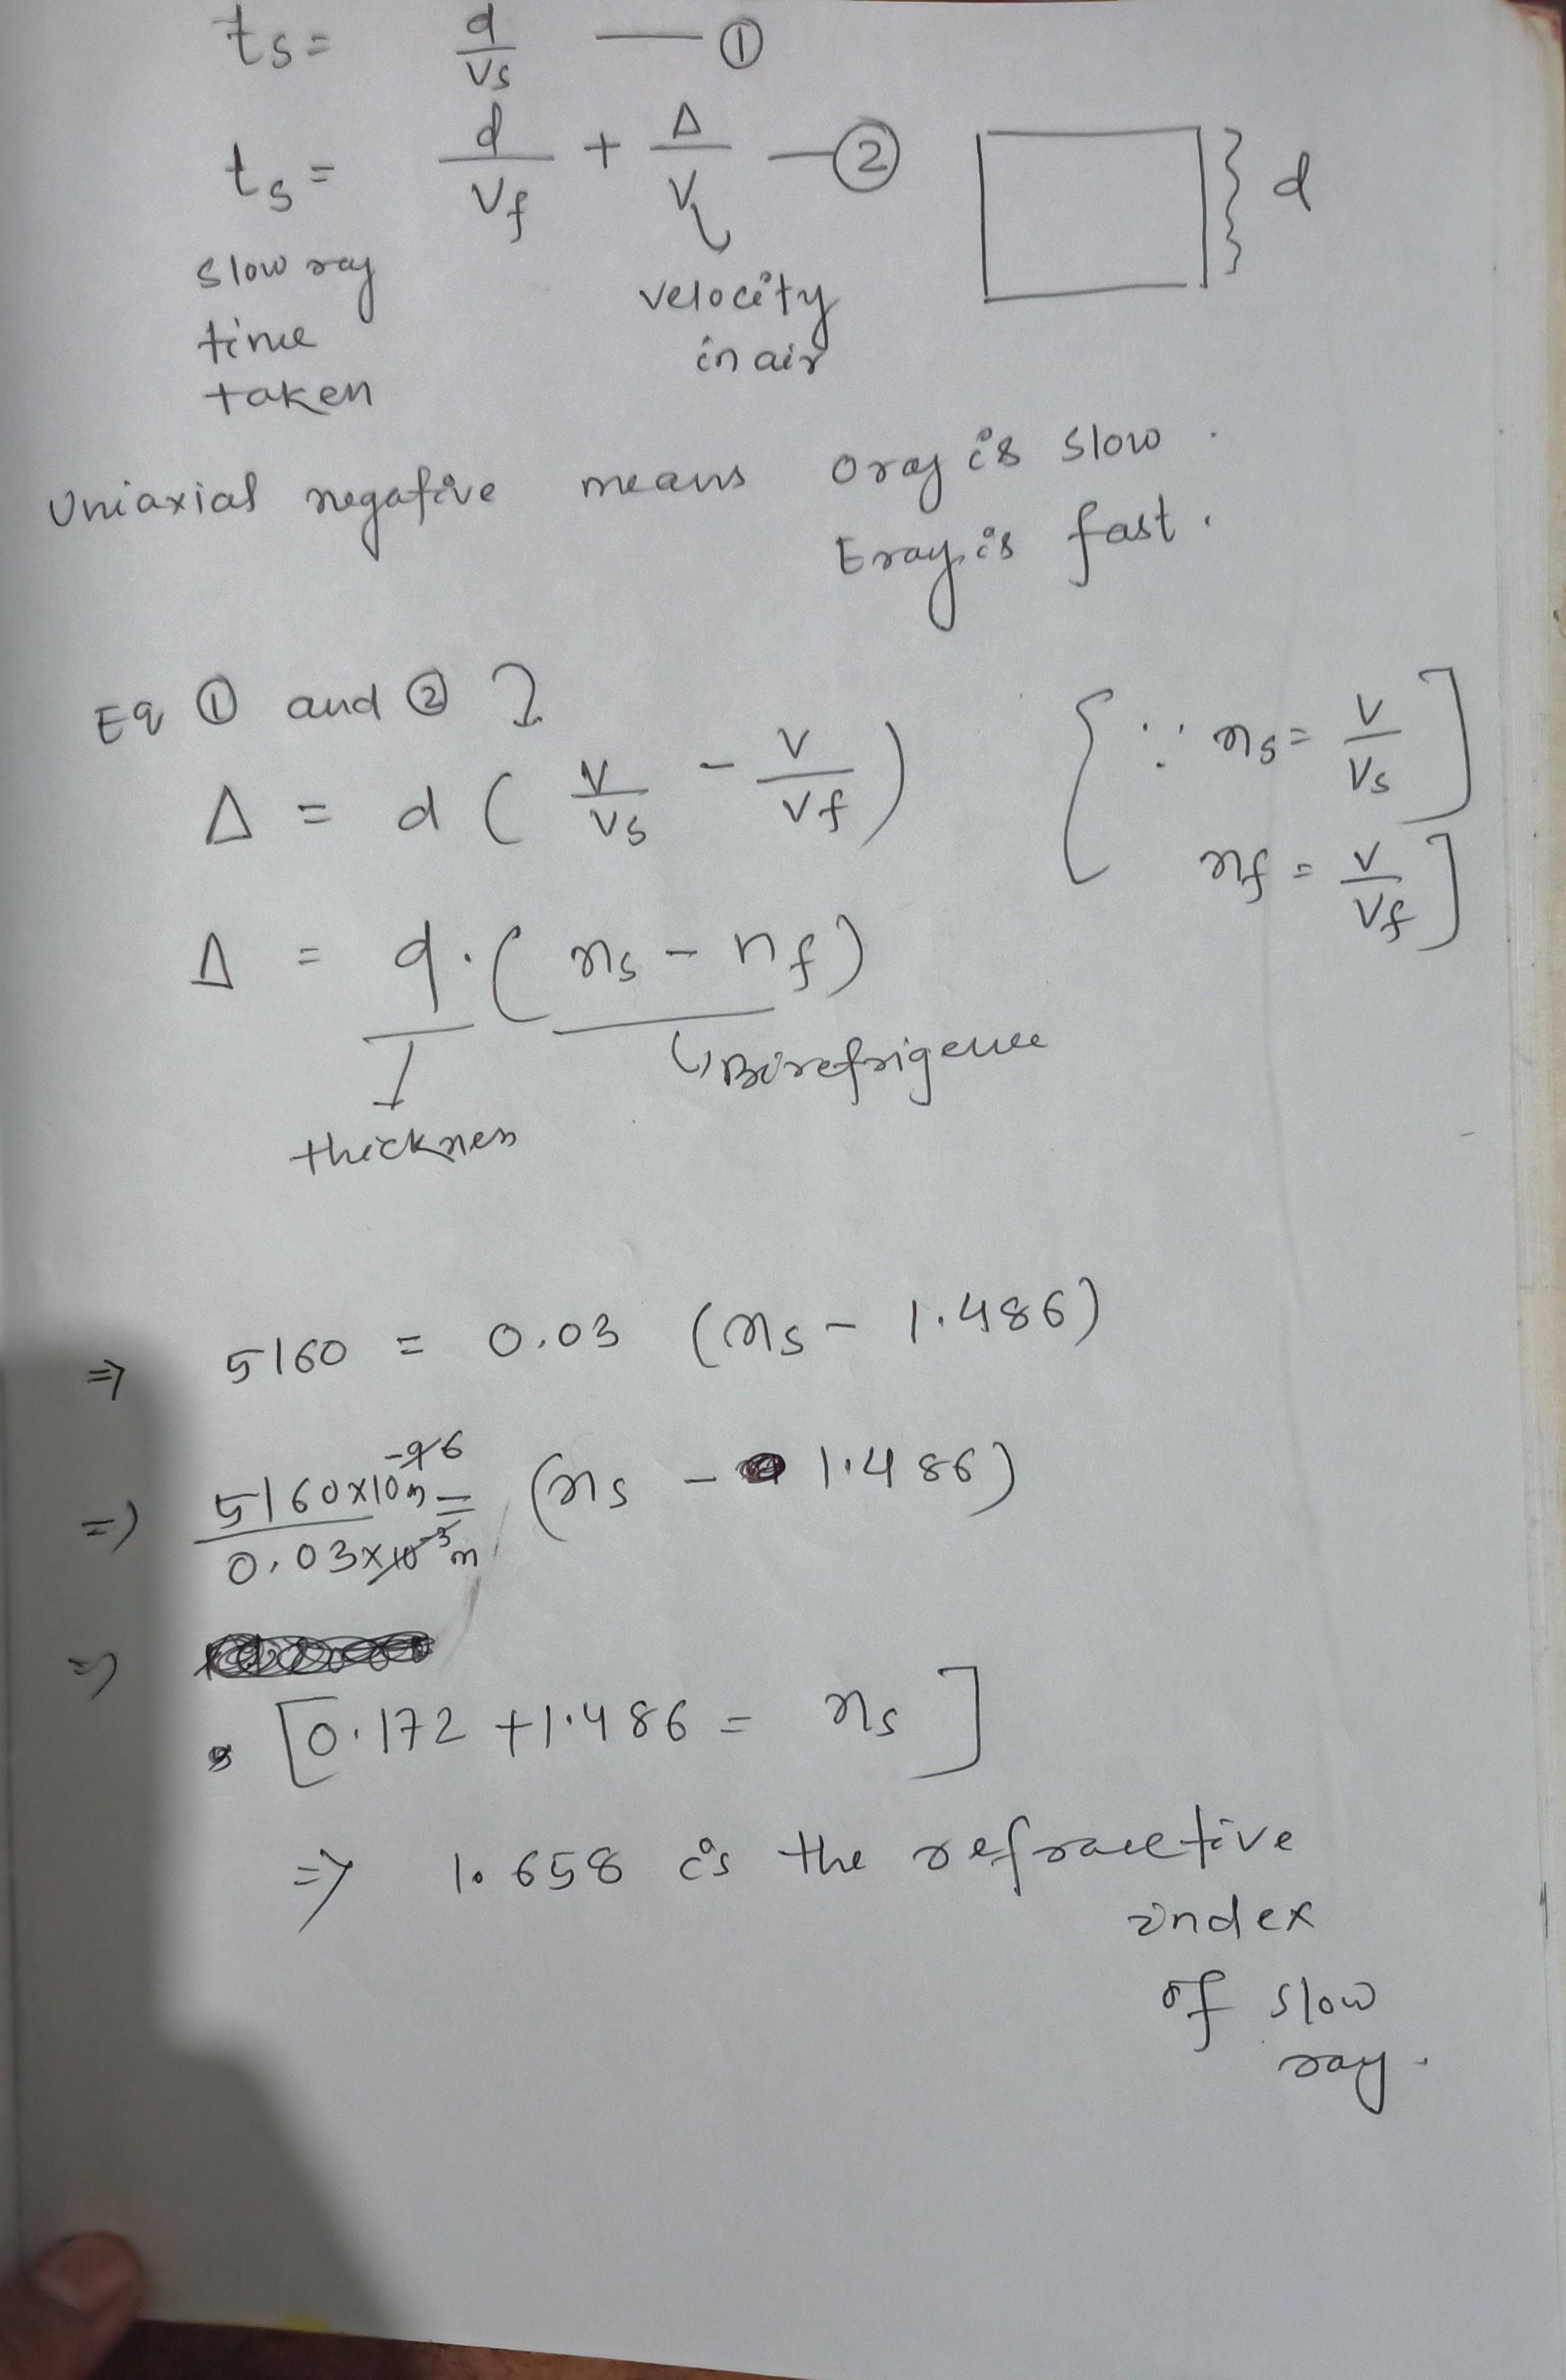 ts = d/Vs — ①
ts = d/Vf + Δ/V — ②
d
slow ray
time
taken
velocity
in air
Uniaxial negative means Oray is slow.
Eray is fast.
Eq ① and ②
Δ = d ( V/Vs - V/Vf )
[ ∵ ns = V/Vs ]
nf = V/Vf ]
Δ = d. ( ns - nf )
Birefrigence
thickness
⇒ 5160 = 0.03 (ns - 1.486)
⇒ 5160×10⁻⁶m / 0.03×10⁻³m = (ns - 1.486)
⇒
[0.172 + 1.486 = ns ]
⇒ 1.658 is the refractive
index
of slow
ray.